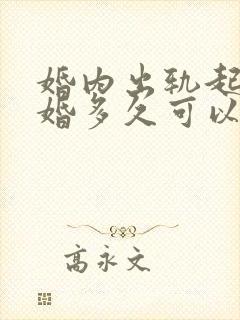 婚内出轨起
婚多久可以
高永文